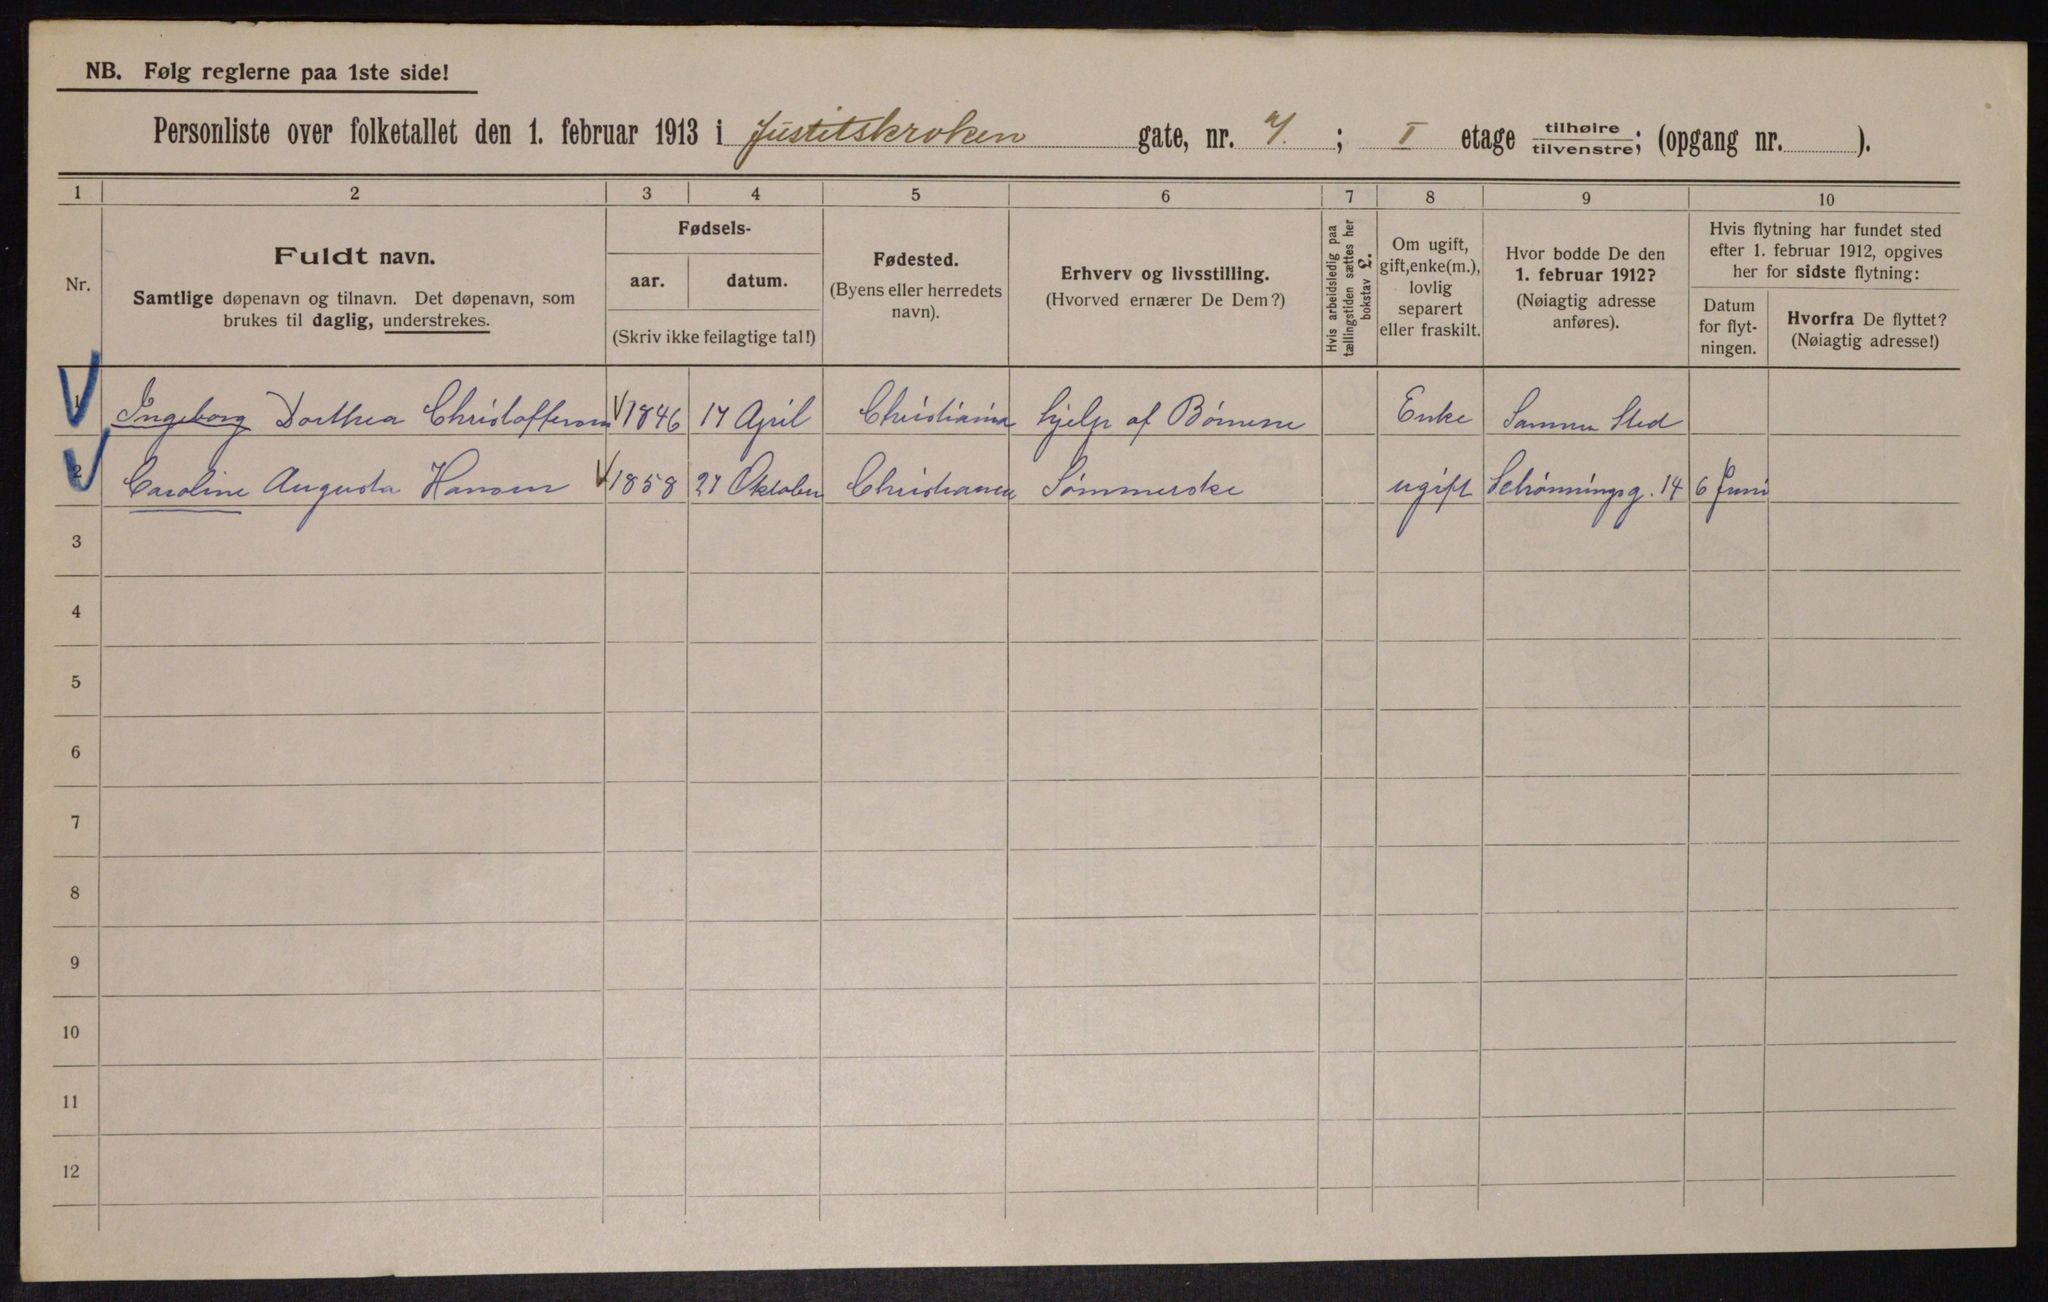 NB. Følg reglerne paa 1ste side!
Personliste over folketallet den 1. februar 1913 i Justitskroken gate, nr. ; I etage tilhøire tilvenstre; (opgang nr. ).
1 2 3 4 5 6 7 8 9 10
Nr.
Fuldt navn.
Samtlige døpenavn og tilnavn. Det døpenavn, som
brukes til daglig, understrekes.
Fødsels-
aar. datum.
(Skriv ikke feilagtige tal!)
Fødested.
(Byens eller herredets
navn).
Erhverv og livsstilling.
(Hvorved ernærer De Dem?)
Hvis arbeidsledig paa
tællingstiden sættes her
bokstav L.
Om ugift,
gift, enke(m.),
lovlig
separert
eller fraskilt.
Hvor bodde De den
1. februar 1912?
(Nøiagtig adresse
anføres).
Hvis flytning har fundet sted
efter 1. februar 1912, opgives
her for sidste flytning:
Datum
for flyt-
ningen.
Hvorfra De flyttet?
(Nøiagtig adresse!)
1 Ingeborg Dorthea Christoffersen 1846 17 April Christiania hjelp af Børnene Enke Samme Sted
2 Caroline Augusta Hansen 1858 27 Oktober Christiania Sømmerske ugift Schønningsg. 14 6 Juni
3
4
5
6
7
8
9
10
11
12